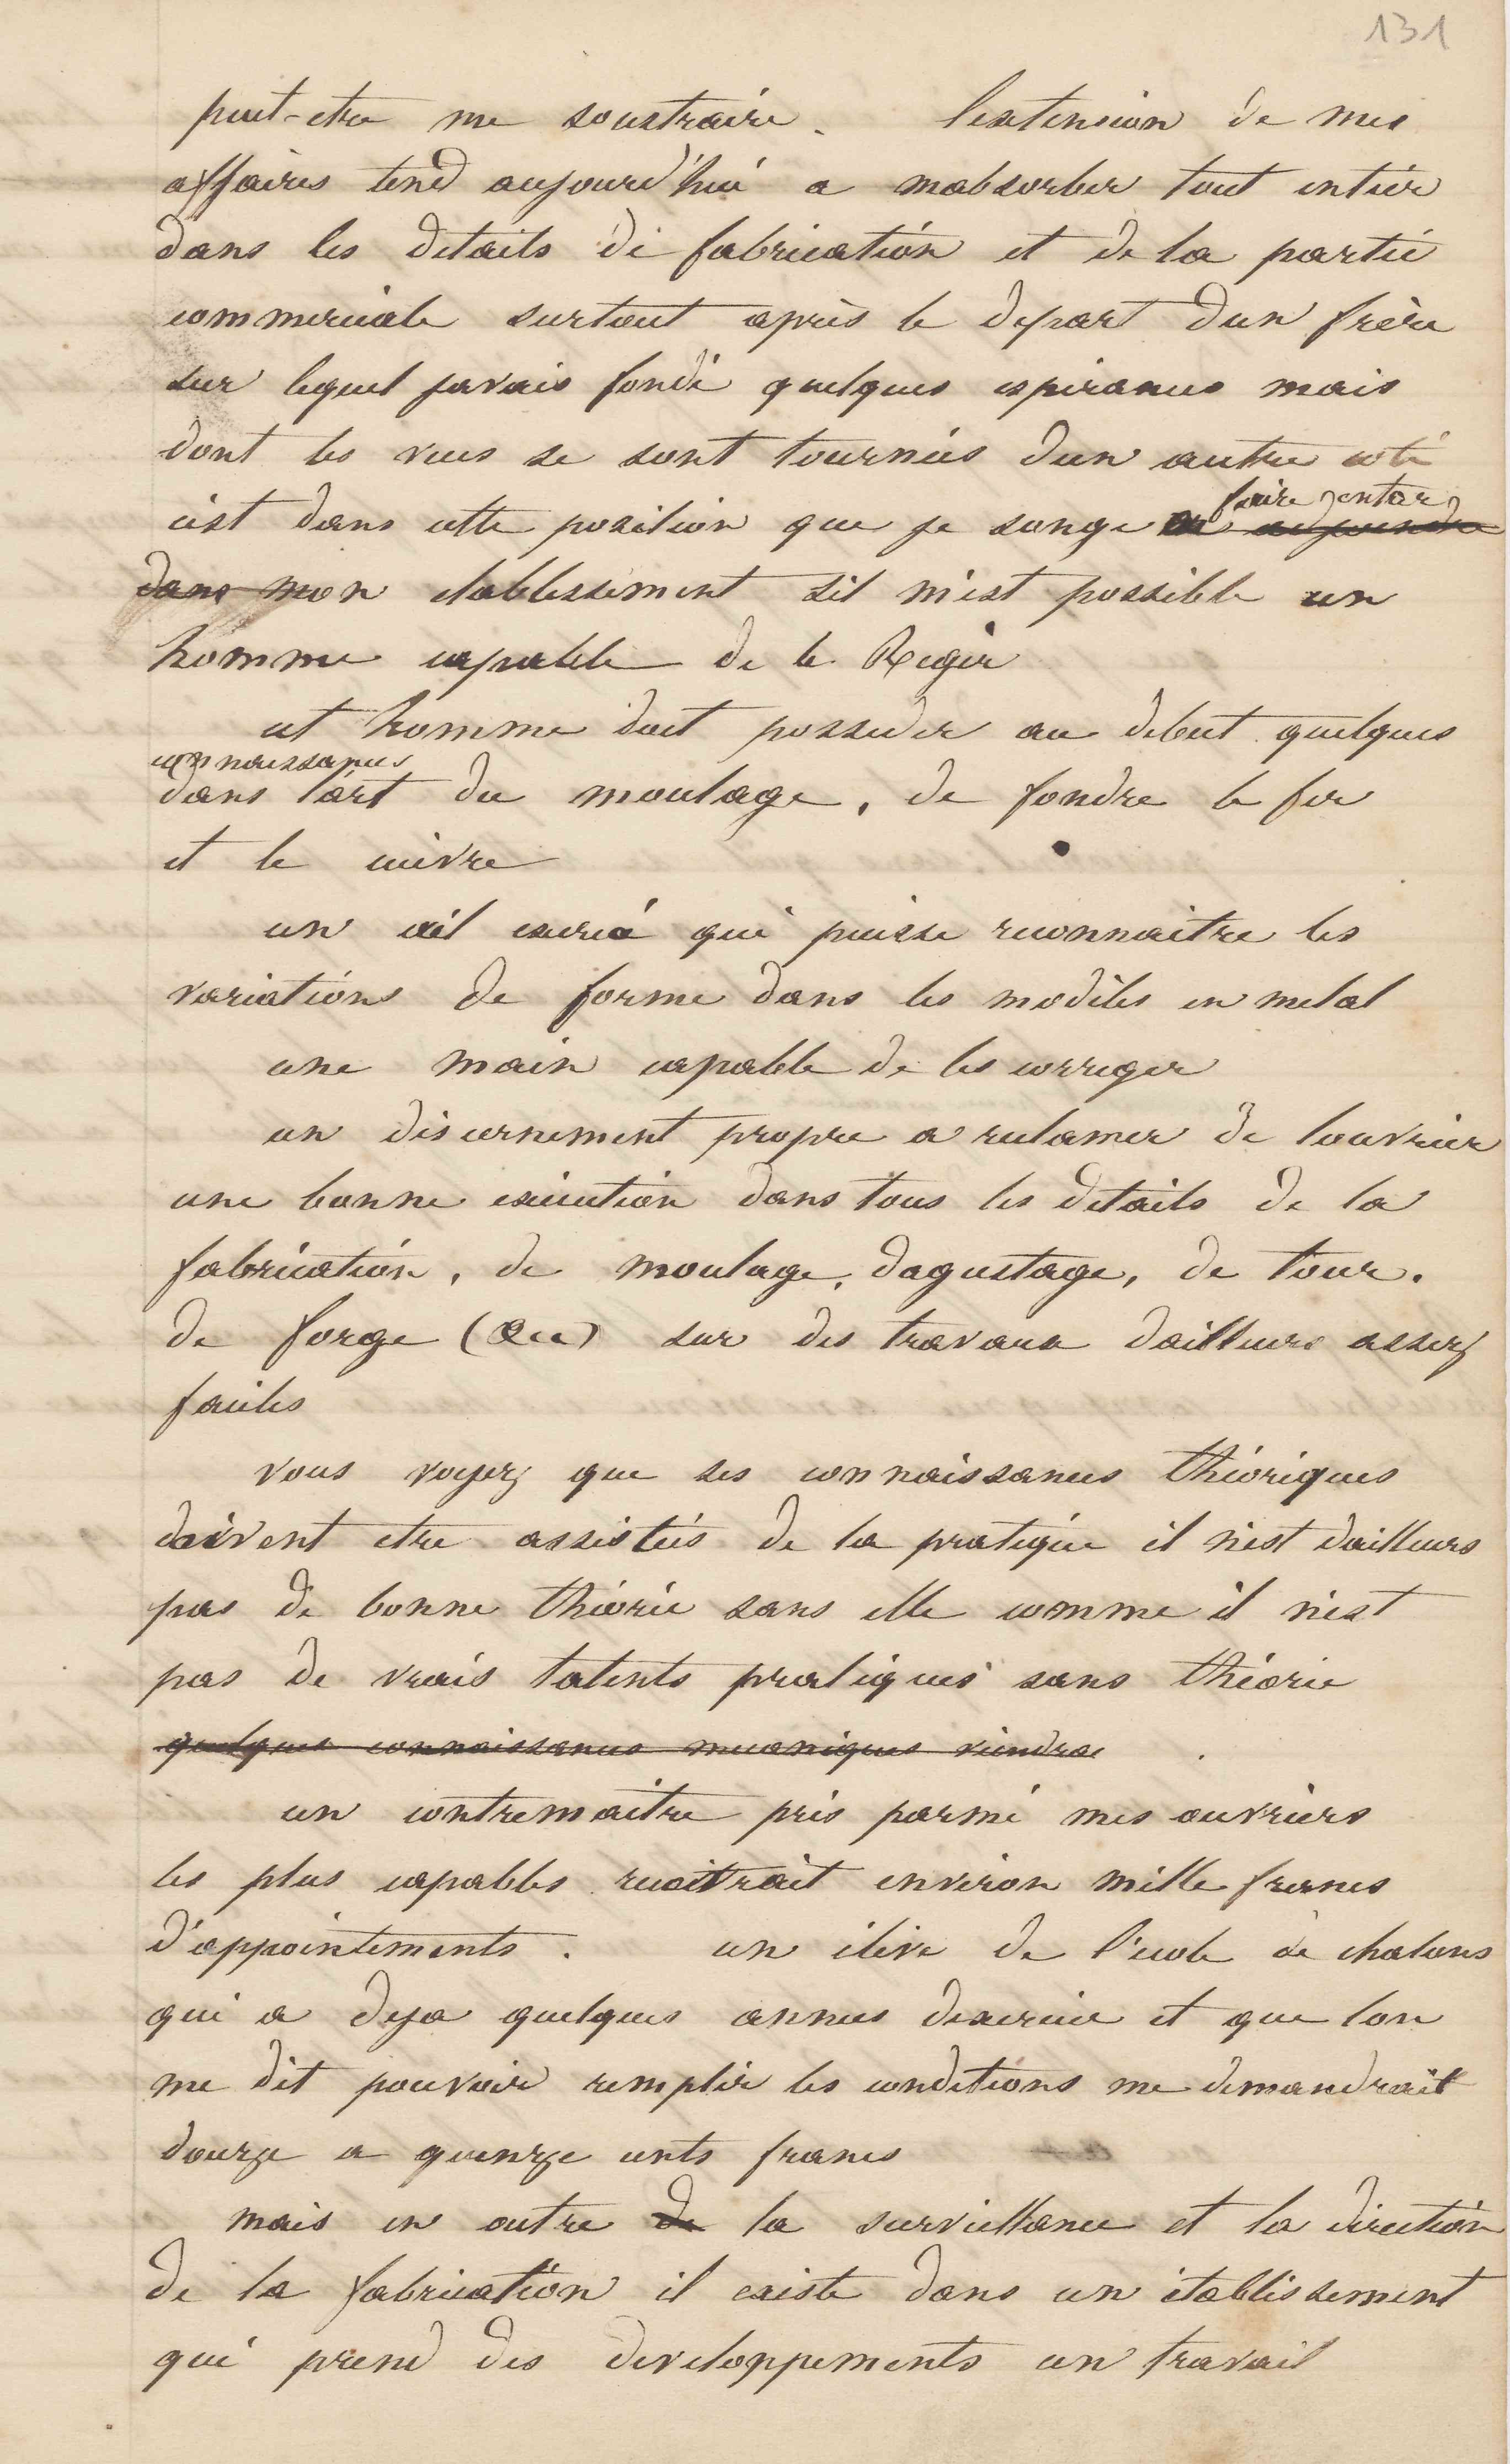 131
peut-etre me soustraire. lextension de mes
affaires tend aujourd'hui a mabsorber tout entier
dans les details de fabrication et de la partie
commerciale surtout après le depart dun frère
sur lequel javais fondé quelques esperances mais
dont les vues se sont tournées dun autre coté
faire entrer
c'est dans cette position que je songe a adjoindre
dans mon etablissement sil m'est possible un
homme capable de le Regir
cet homme doit posseder au debut quelques
connaissances
dans l'art du moulage, de fondre le fer
et le cuivre
un œil exercé qui puisse reconnaitre les
variations de forme dans les modèles en metal
une main capable de les corriger
un discernement propre a reclamer de louvrier
une bonne exécution dans tous les details de la
fabrication, de moulage, dagustage, de tour.
de forge (&cc) sur des travaux dailleurs assez
faciles
vous voyez que ses connaissances théoriques
doivent etre assistées de la pratique il n'est dailleurs
pas de bonne théorie sans elle comme il n'est
pas de vrais talents pratiques sans théorie
quelques connaissances mecaniques viendra
un contremaitre pris parmi mes ouvriers
les plus capables recevrait environ mille francs
d'appointements. un élève de l'ecole de chalons
qui a deja quelques annees dexercice et que lon
me dit pouvoir remplir les conditions me demandrait
douze a quinze cents francs
mais en outre de la surveillance et la direction
de la fabrication il existe dans un établissement
qui prend des developpements un travail